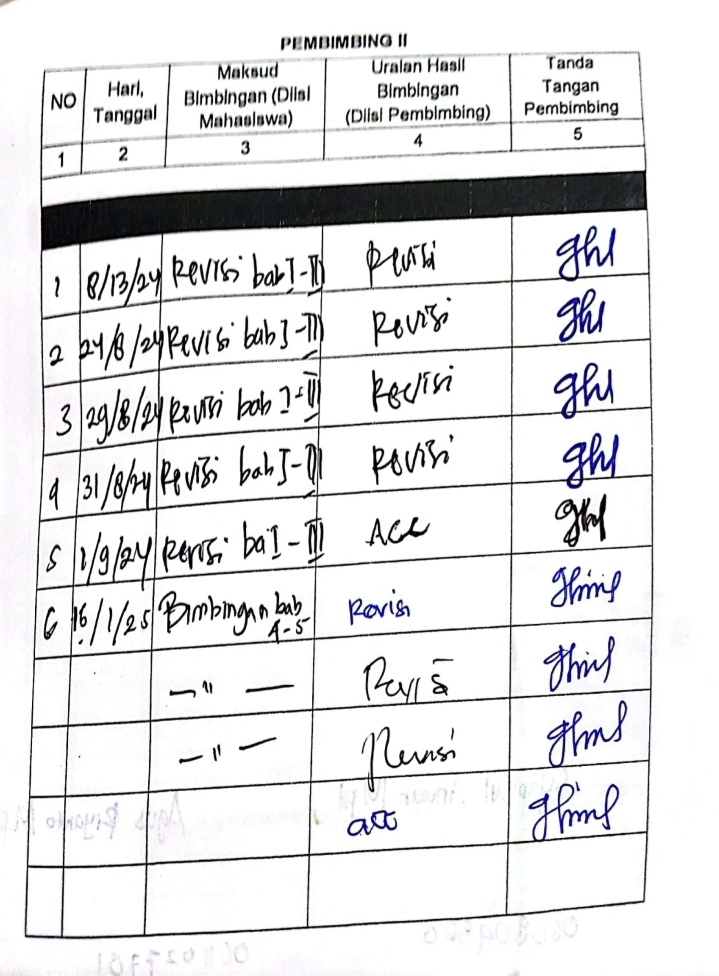 PEMBIMBING II
NO
Hari,
Tanggal
Maksud
Bimbingan (Diisi
Mahasiswa)
Uraian Hasil
Bimbingan
(Diisi Pembimbing)
Tanda
Tangan
Pembimbing
1 2 3 4 5
1 8/13/24 Revisi bab I-III Revisi
2 24/8/24 Revisi bab I-III Revisi
3 29/8/24 Revisi bab I-III Revisi
4 31/8/24 Revisi bab I-III Revisi
5 1/9/24 Revisi ba I-III ACC
6 16/1/25 Bimbingan bab
4-5
Revisi
— " — Revisi
— " — Revisi
acc